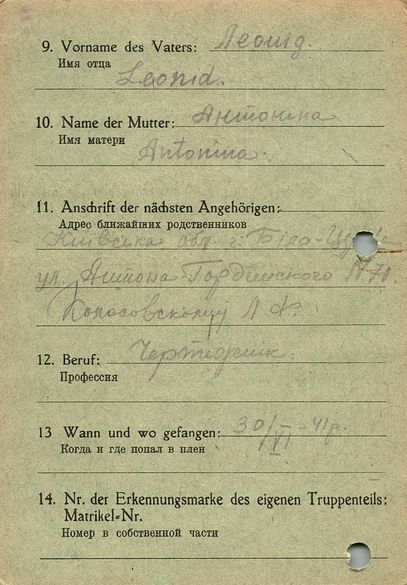 9. Vorname des Vaters: Леонид.
Имя отца
Leonid.
10. Name der Mutter: Антонина
Имя матери
Antonina.
11. Anschrift der nächsten Angehörigen:
Адрес ближайших родственников
Київська обл. г. Біла-
ул. Антона
Колосовскому Л
12. Beruf: Чертежник.
Профессия
13 Wann und wo gefangen: 30/VI-41р.
Когда и где попал в плен
14. Nr. der Erkennungsmarke des eigenen Truppenteils:
Matrikel-Nr.
Номер в собственной части